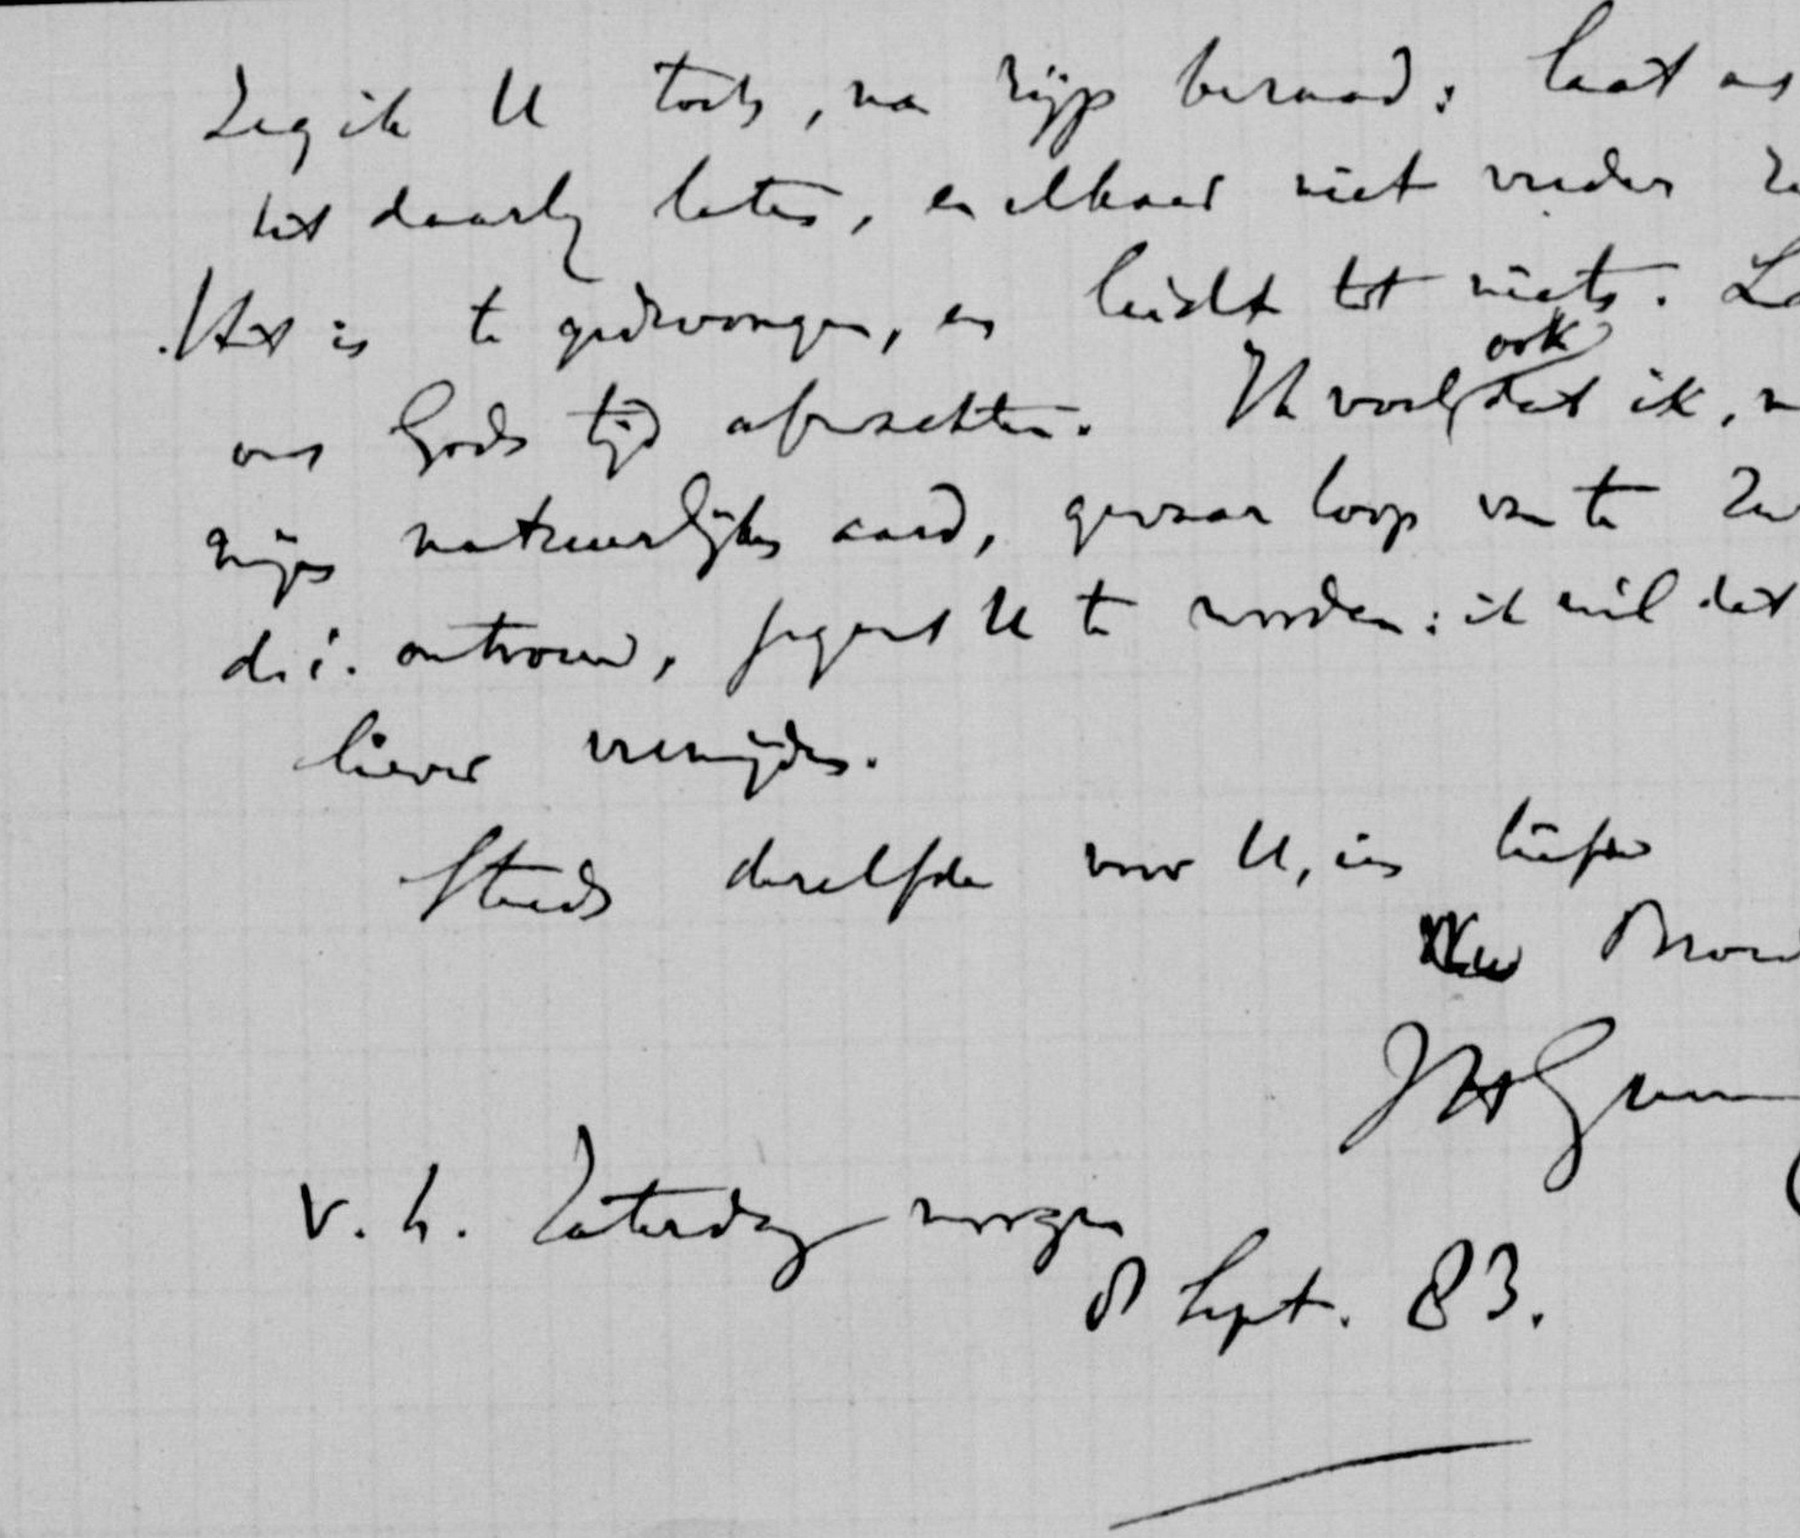 Zeg ik U toch, na rijp beraad: laat
het daarbij laten, en elkaar niet verder
Het is te gedwongen, en leidt tot niets.
ook
ons Gods tijd afwachten. Ik voel dat ik,
mijn natuurlijken aard, gevaar loop van te
d. i. ontrouw, jegens U te worden: ik wil dat
liever vermijden.
Steeds dezelfde voor U, in liefde
Uw
V. h. Zaterdag morgen
8 Sept. 83.